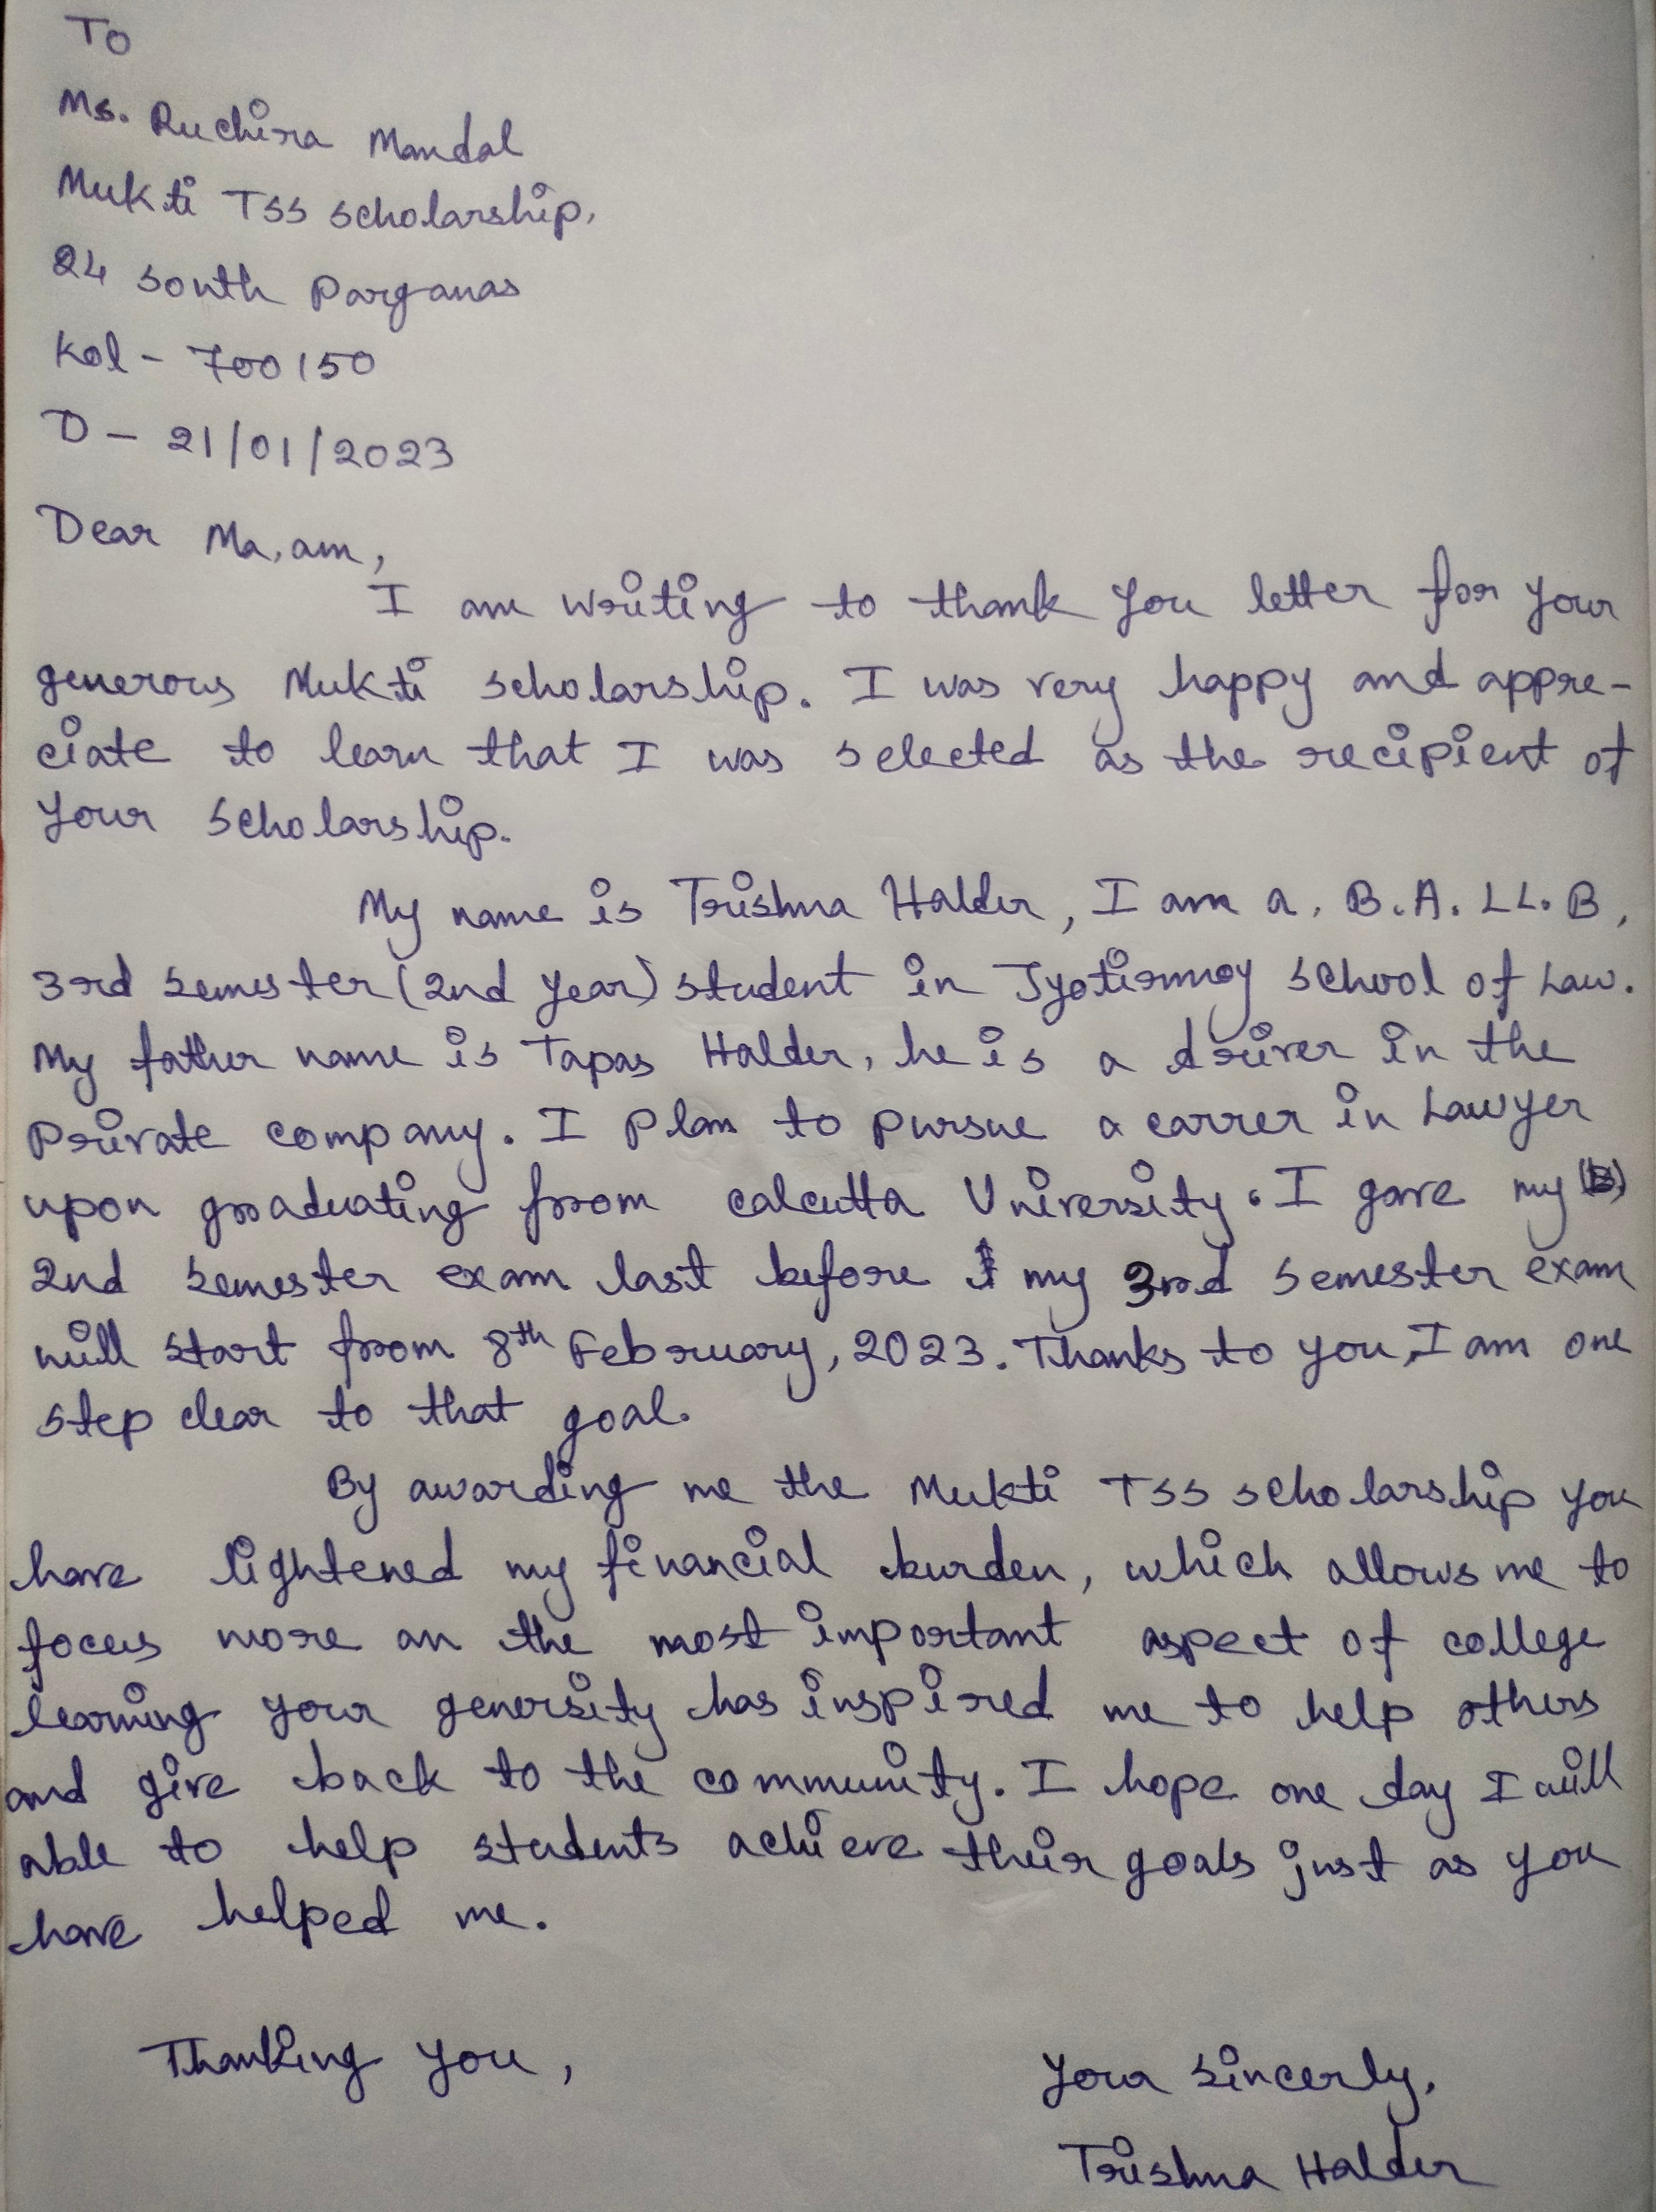 To
Ms. Ruchira Mandal
Mukti TSS scholarship,
24 South Parganas
Kol - 700150
D - 21/01/2023
Dear Ma,am,
I am writing to thank you letter for your
generous Mukti scholarship. I was very happy and appre-
ciate to learn that I was selected as the recipient of
your scholarship.
My name is Trishna Halder, I am a, B.A. LL.B,
3rd semester (2nd year) student in Jyotirmoy School of Law.
My father name is Tapas Halder, he is a driver in the
private company. I plan to pursue a carrer in Lawyer
upon graduating from calcutta University. I gave my
2nd semester exam last before my 3rd semester exam
will start from 8th February, 2023. Thanks to you, I am one
step clear to that goal.
By awarding me the Mukti TSS scholarship you
have lightened my financial burden, which allows me to
focus more an the most important aspect of college
learning your genersity has inspired me to help others
and give back to the community. I hope one day I will
able to help students achieve their goals just as you
have helped me.
Thanking you,
Your sincerly,
Trishna Halder